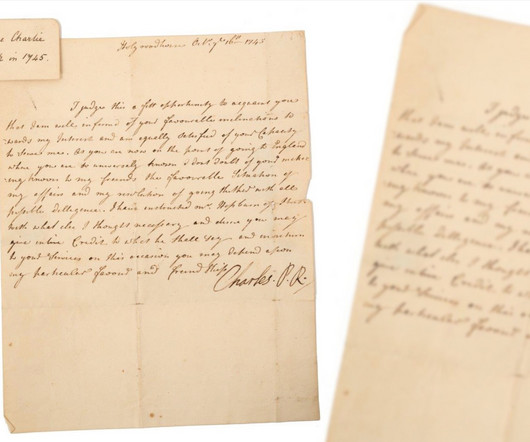 Charlie
in 1745.
Holyroodhouse Octr. ye 16th 1745
I judge this a fitt opportunity to acquaint you
that I am well informed of your favourable inclinations to
wards my Interest and am equally satisfied of your Capacity
to serve me. As you are now on the point of going to England
where you are so universaly known I don't doubt of your makeing
known to my friends the favourable Situation of
my affairs and my resolution of going thither with all
possible dilligence. I have instructed Mr. Hepburn of
with what else I thought necessary and desire you may
give intire Credit to what he shall say and in return
to your Services on this occasion you may depend upon
my particular favour and friendship
Charles. P. R.
I judge
that I am well
wards my
to serve
where you are
known
my affairs and my
possible dilligence
with what else I thought
give intire Credit to what
to your Services on this
my particular